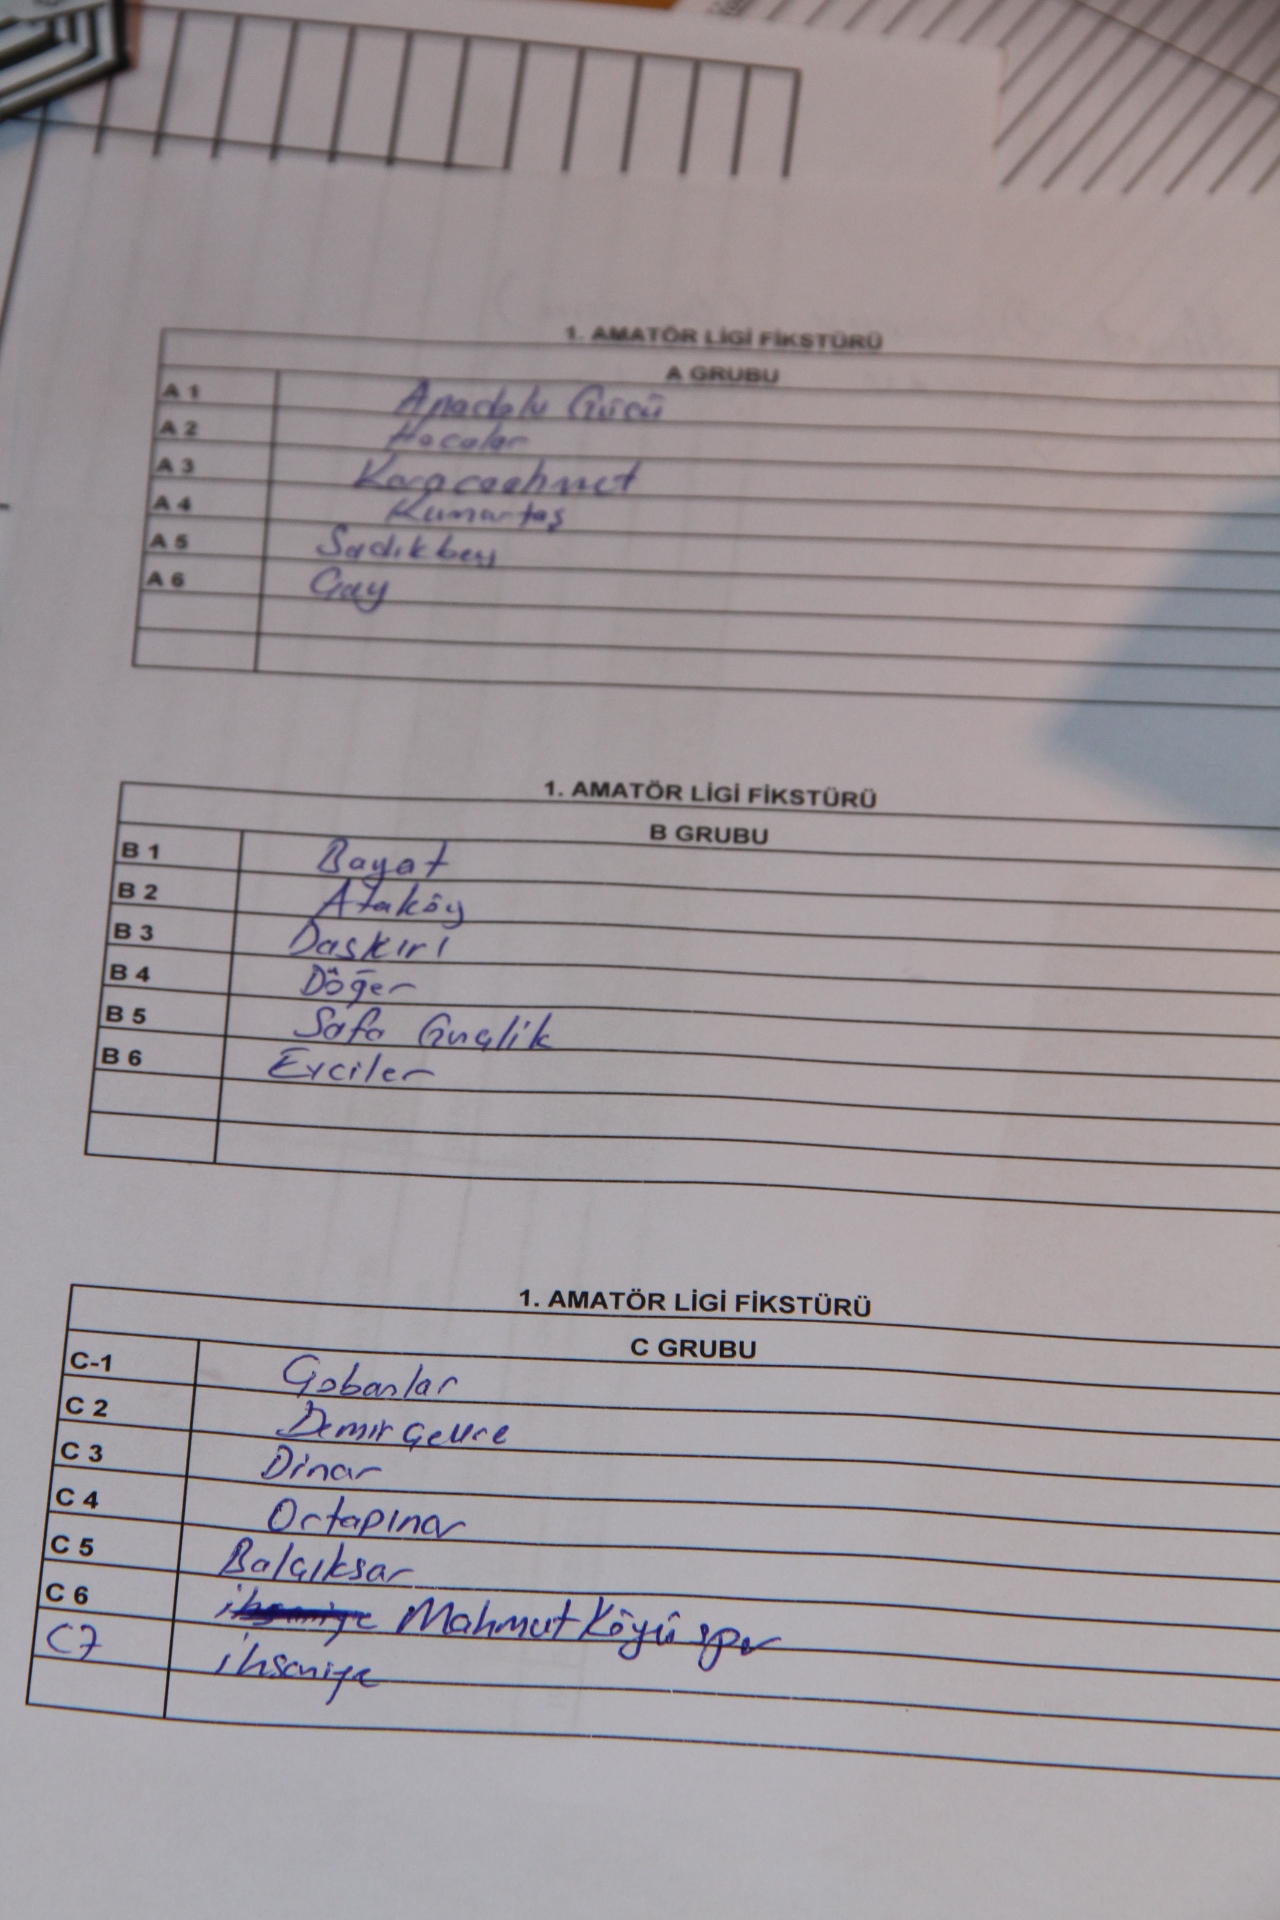 1. AMATÖR LİGİ FİKSTÜRÜ
A GRUBU
A 1 Anadolu Gücü
A 2 Hocalar
A 3 Karacaahmet
A 4 Kumartaş
A 5 Sadıkbey
A 6 Çay
1. AMATÖR LİGİ FİKSTÜRÜ
B GRUBU
B 1 Bayat
B 2 Ataköy
B 3 Daskırı
B 4 Döğer
B 5 Safa Gnçlik
B 6 Evciler
1. AMATÖR LİGİ FİKSTÜRÜ
C GRUBU
C-1 Çobanlar
C 2 Demir Çevre
C 3 Dinar
C 4 Ortapınar
C 5 Balçıksar
C 6 ihsaniye Mahmut Köyü spor
C7 ihsaniye